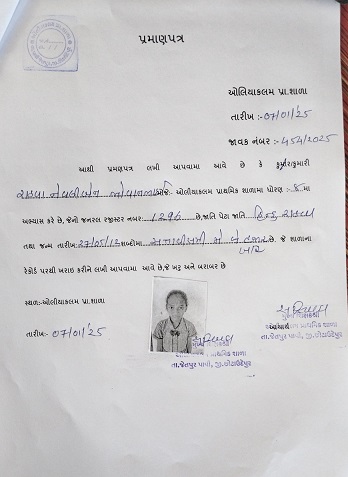 પ્રમાણપત્ર
ઓલિયાકલમ પ્રા.શાળા
તારીખ :- 07/01/25
જાવક નંબર :- 454/2025
આથી પ્રમાણપત્ર લખી આપવામાં આવે છે કે કુમાર/કુમારી
રાઠવા ઓલિયાકલમ પ્રાથમિક શાળામાં ધોરણ :- માં
અભ્યાસ કરે છે, જેનો જનરલ રજીસ્ટર નંબર:- 1296 છે,જાતિ પેટા જાતિ હિન્દુ રાઠવા
તથા જન્મ તારીખ:27/05/12 શબ્દોમાં સત્તાવીસમી મે બે હજાર છે. જે શાળાના
બાર
રેકોર્ડ પરથી ખરાઇ કરીને લખી આપવામાં આવે છે,જે ખરૂ અને બરાબર છે
સ્થળ:-ઓલીયાકલમ પ્રા.શાળા
તારીખ:- 07/01/25
આચાર્ય
પ્રાથમિક શાળા
તા.જેતપુર પાવી, જી.છોટાઉદેપુર
પ્રાથમિક શાળા
તા.જેતપુર પાવી, જી.છોટાઉદેપુર